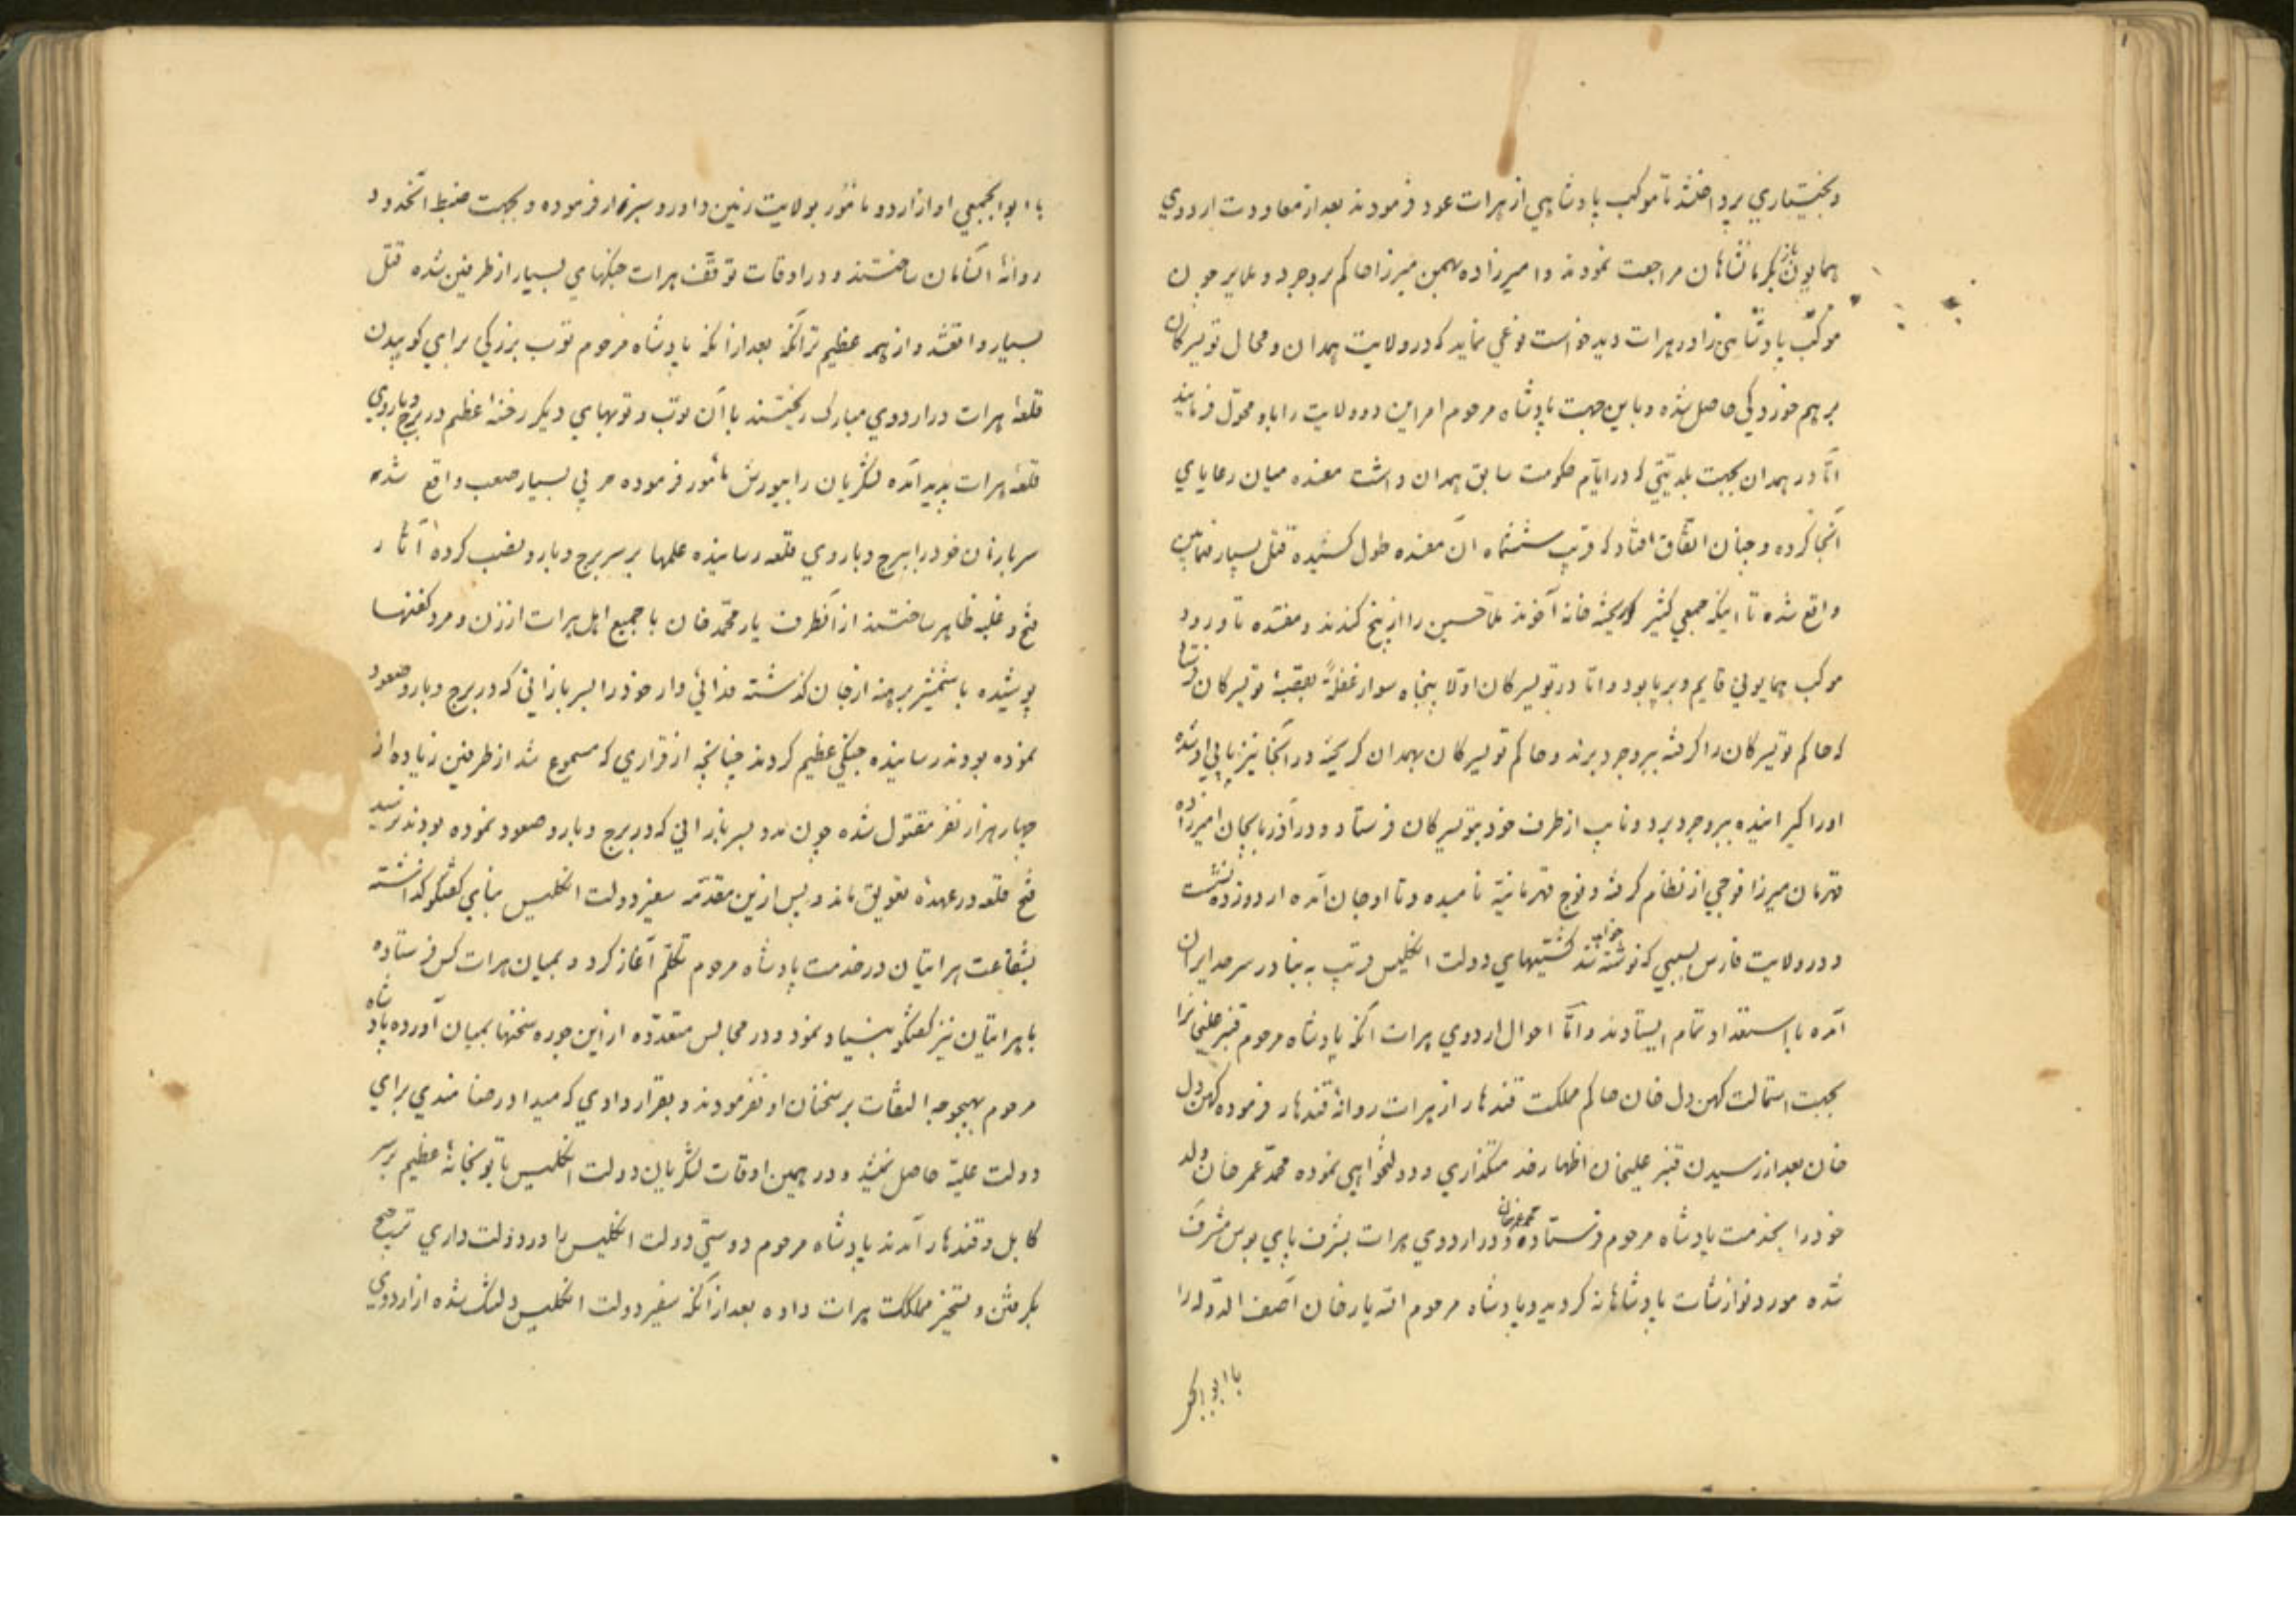 و بختیاری پرداختند تا موکب پادشاهی از هرات عود فرمودند بعد از معاودت اردوی
همایون باز بکرمانشاهان مراجعت نمودند و امیرزاده بهمن میرزا حاکم بروجرد و ملایر چون
موکب پادشاهی را در هرات دید خواست نوعی نماید که در ولایت همدان و محال تویسرکان
برهم خوردگی حاصل شده و باین جهت پادشاه مرحوم امر این دو ولایت را باو محول فرمایند
اما در همدان بجهت بلدیتی که در ایام حکومت سابق همدان داشت مفسده میان رعایای
آنجا کرده و چنان اتفاق افتاد که قریب ششماه آن مفسده طول کشیده قتل بسیار فیمابین
واقع شده تا اینکه جمعی کثیر ریخته خانه آخوند ملا حسین را از بیخ کندند و مفسده تا ورود
موکب همایونی قایم و برپا بود و اما در تویسرکان اولا پنجاه سوار غفلةً بقصبهٔ تویسرکان فرستاد
که حاکم تویسرکان را گرفته ببروجرد برند و حاکم تویسرکان بهمدان گریخته در آنجا نیز پاپی او شده
او را گیرانیده ببروجرد برد و نایب از طرف خود بتویسرکان فرستاد و در آذربایجان امیرزاده
قهرمان میرزا فوجی از نظام گرفته و فوج قهرمانیه نامیده و تا اوجان آمده اردو زده نشست
و در ولایت فارس بسببی که نوشته شد کشتیهای دولت انگلیس قریب به بنادر سرحد ایران
آمده با استعداد تمام ایستادند و اما احوال اردوی هرات آنکه پادشاه مرحوم قنبر علیخانرا
بجهت استمالت کهن دل خان حاکم مملکت قندهار از هرات روانهٔ قندهار فرموده کهن دل
خان بعد از رسیدن قنبر علیخان اظهار خدمتگذاری و دولتخواهی نموده محمد عمر خان ولد
خود را بخدمت پادشاه مرحوم فرستاده محمد عمر خان در اردوی هرات بشرف پای بوس مشرف
شده مورد نوازشات پادشاهانه گردید و پادشاه مرحوم الله یار خان آصف الدوله را
با ابوابجمعی او از اردو مأمور بولایت زمین داور و سبزوار فرموده و بجهت ضبط آنحدود
روانهٔ آنسامان ساختند و در اوقات توقف هرات جنگهای بسیار از طرفین شده قتل
بسیار واقعشد و از همه عظیم تر آنکه بعد از آنکه پادشاه مرحوم توپ بزرگی برای کوبیدن
قلعهٔ هرات در اردوی مبارک ریختند با آن توپ و توپهای دیگر رخنهٔ عظیم در برج و باروی
قلعهٔ هرات پدید آمده لشکریان را بیورش مأمور فرموده حربی بسیار صعب واقع شده
سربازان خود را ببرج و باروی قلعه رسانیده علمها بر سر برج و بارو نصب کرده آثار
فتح و غلبه ظاهر ساختند از آنطرف یار محمد خان با جمیع اهل هرات از زن و مرد کفنها
پوشیده با شمشیر برهنه از جان گذشته فدائی وار خود را بسربازانی که در برج و بارو صعود
نموده بودند رسانیده جنگی عظیم کردند چنانچه از قراری که مسموع شد از طرفین زیاده از
چهار هزار نفر مقتول شده چون مدد بسربازانی که در برج و بارو صعود نموده بودند نرسید
فتح قلعه در عهدهٔ تعویق ماند و پس ازین مقدمه سفیر دولت انگلیس بنای گفتگو گذاشته
بشفاعت هراتیان در خدمت پادشاه مرحوم تکلم آغاز کرد و بمیان هرات کس فرستاده
با هراتیان نیز گفتگو بنیاد نمود و در مجالس متعدده از این جوره سخنها بمیان آورده پادشاه
مرحوم بهیچوجه التفات بر سخنان او نفرمودند و بقراردادی که میداد رضامندی برای
دولت علیه حاصل نمیشد و در همین اوقات لشکریان دولت انگلیس با توپخانهٔ عظیم بر سر
کابل و قندهار آمدند پادشاه مرحوم دوستی دولت انگلیس را در دولت داری ترجیح
بگرفتن و تسخیر مملکت هرات داده بعد از آنکه سفیر دولت انگلیس دلتنگ شده از اردوی
با ابوابجمعی